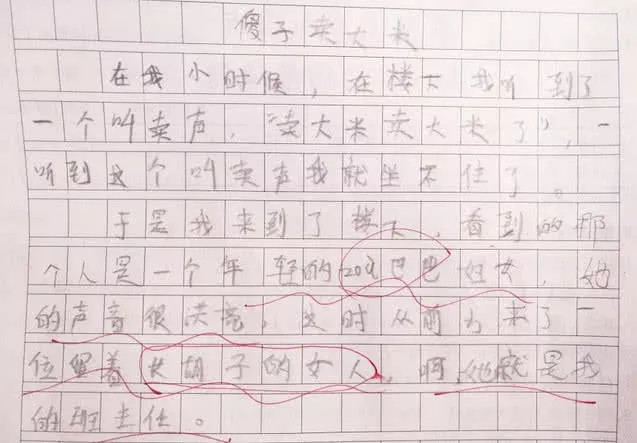 傻子卖大米
在我小时候，在楼下我听到了
一个叫卖声，“卖大米卖大米了”，一
听到这个叫卖声我就坐不住了。
于是我来到了楼下，看到的那
个人是一个年轻的20多巴巴妇女，她
的声音很洪亮，这时从前方来了一
位留着长胡子的女人，啊，她就是我
的班主任。